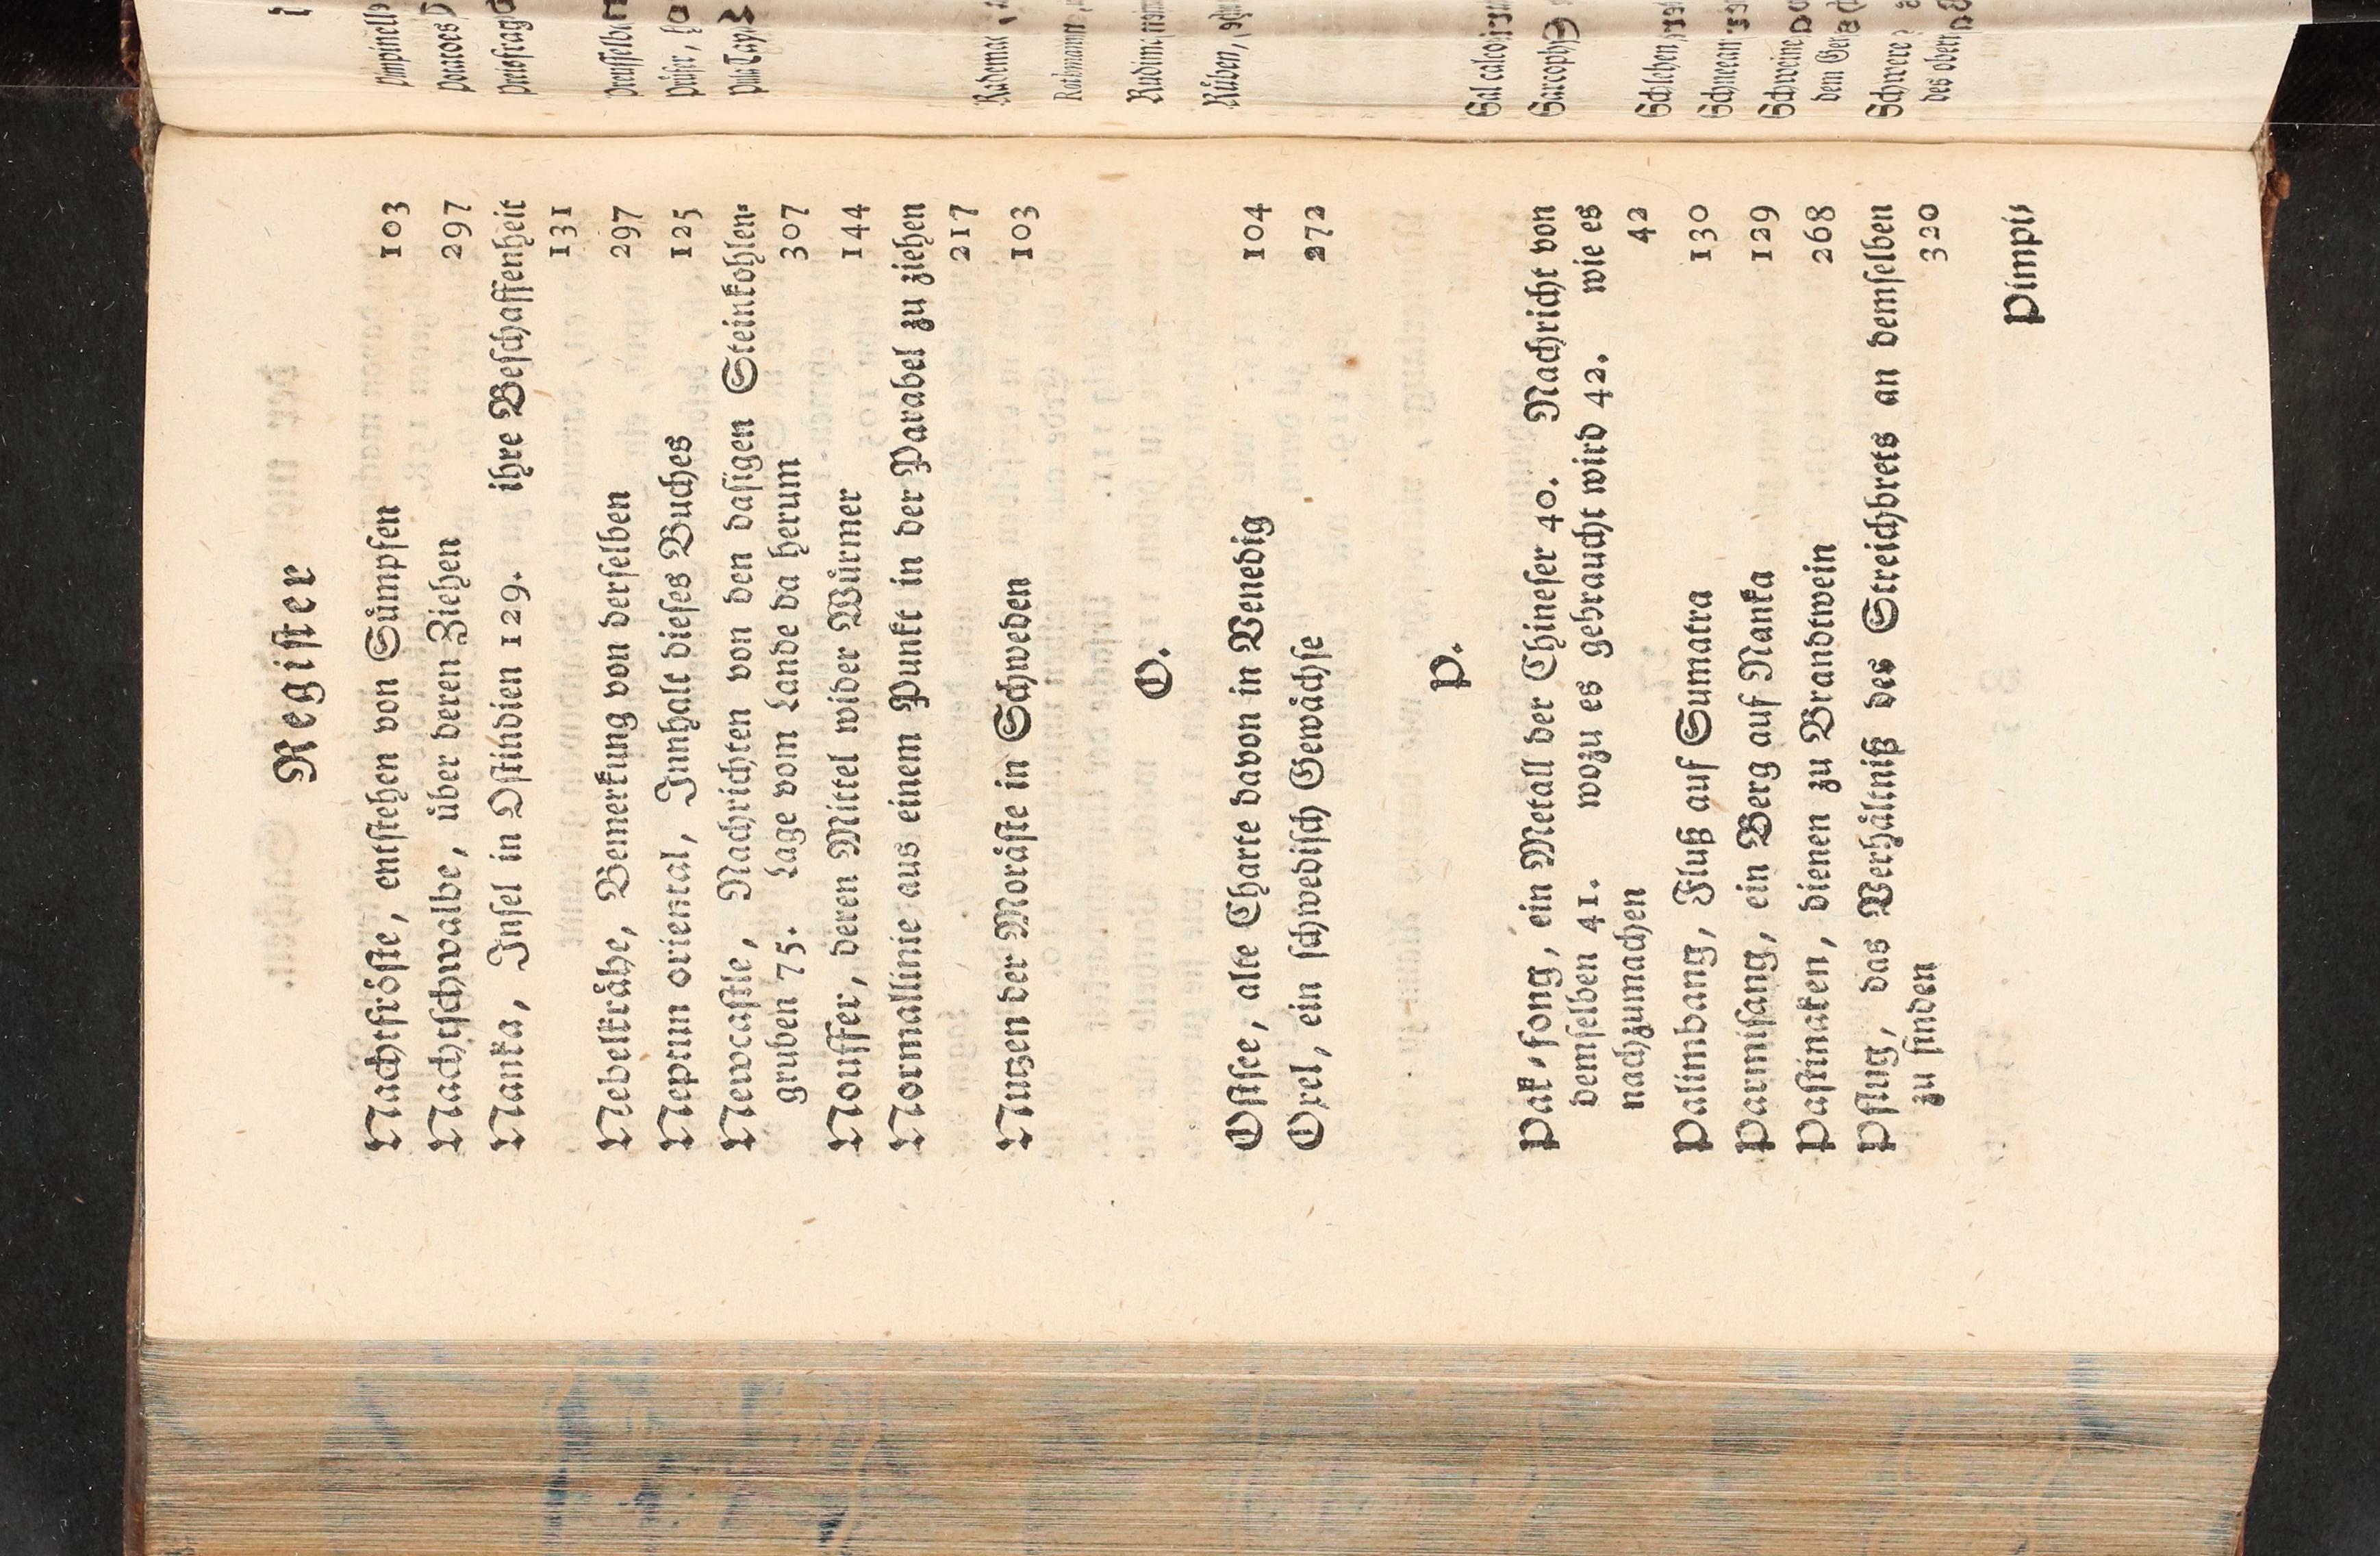 Regiſter
Nachtfröſte, entſtehen von Sümpfen 103
Nachtſchwalbe, über deren Ziehen 297
Nanka, Inſel in Oſtindien 129. ihre Beſchaffenheit
131
Nebelkrähe, Bemerkung von derſelben 297
Neptun oriental, Innhalt dieſes Buches 125
Newcaſtle, Nachrichten von den daſigen Steinkohlen-
gruben 75. Lage vom Lande da herum 307
Nouffer, deren Mittel wider Würmer 144
Normallinie aus einem Punkt in der Parabel zu ziehen
217
Nutzen der Moräſte in Schweden 103
O.
Oſtſee, alte Charte davon in Venedig 104
Oxel, ein ſchwediſch Gewächſe 272
P.
Pak-fong, ein Metall der Chineſer 40. Nachricht von
demſelben 41. wozu es gebraucht wird 42. wie es
nachzumachen 42
Palimbang, Fluß auf Sumatra 130
Parmiſang, ein Berg auf Nanka 129
Paſtinaken, dienen zu Brandtwein 268
Pflug, das Verhältniß des Streichbrets an demſelben
zu finden 320
Pimpi-
Pimpinell
Potatoes
Preuſſelb
Rademac
Rothmann
Rüben,
Sal calc
Sarcoph
Schlehen
Schweine
Schwere
des obern